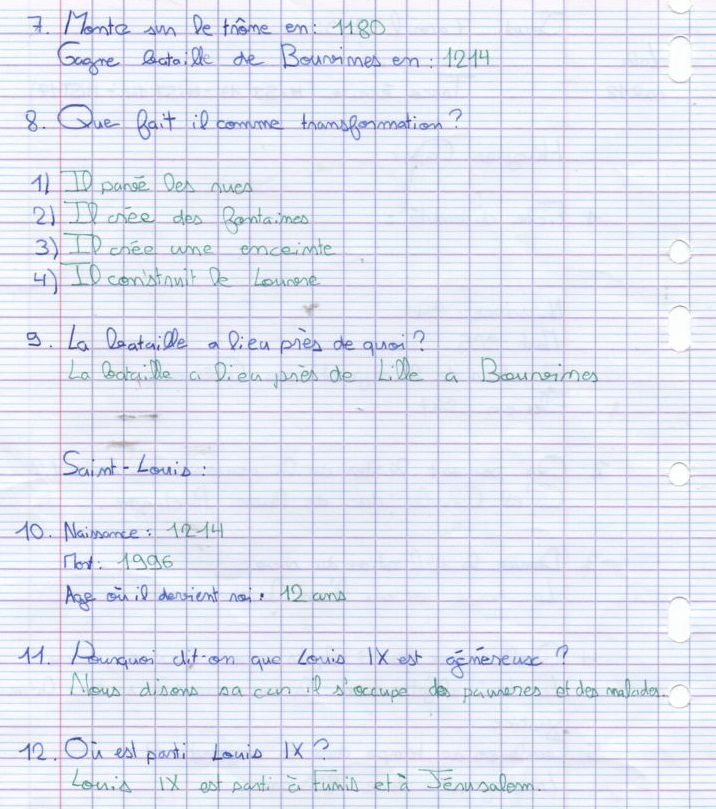 7. Monte sur le trône en : 1180
Gagne bataille de Bouvimes en : 1214
8. Que fait il comme transformation ?
1) Il pavée les rues
2) Il crée des fontaines
3) Il crée une enceinte
4) Il construit le Louvre
9. La bataille a lieu près de quoi ?
La bataille a lieu près de Lille a Bouvimes
Saint-Louis :
10. Naissance : 1214
Mort : 1996
Age où il devient roi : 12 ans
11. Pourquoi dit-on que Louis IX est généreux ?
Nous disons sa car il s'occupe des pauvres et des malades.
12. Où est parti Louis IX ?
Louis IX est parti à Tunis et à Jérusalem.